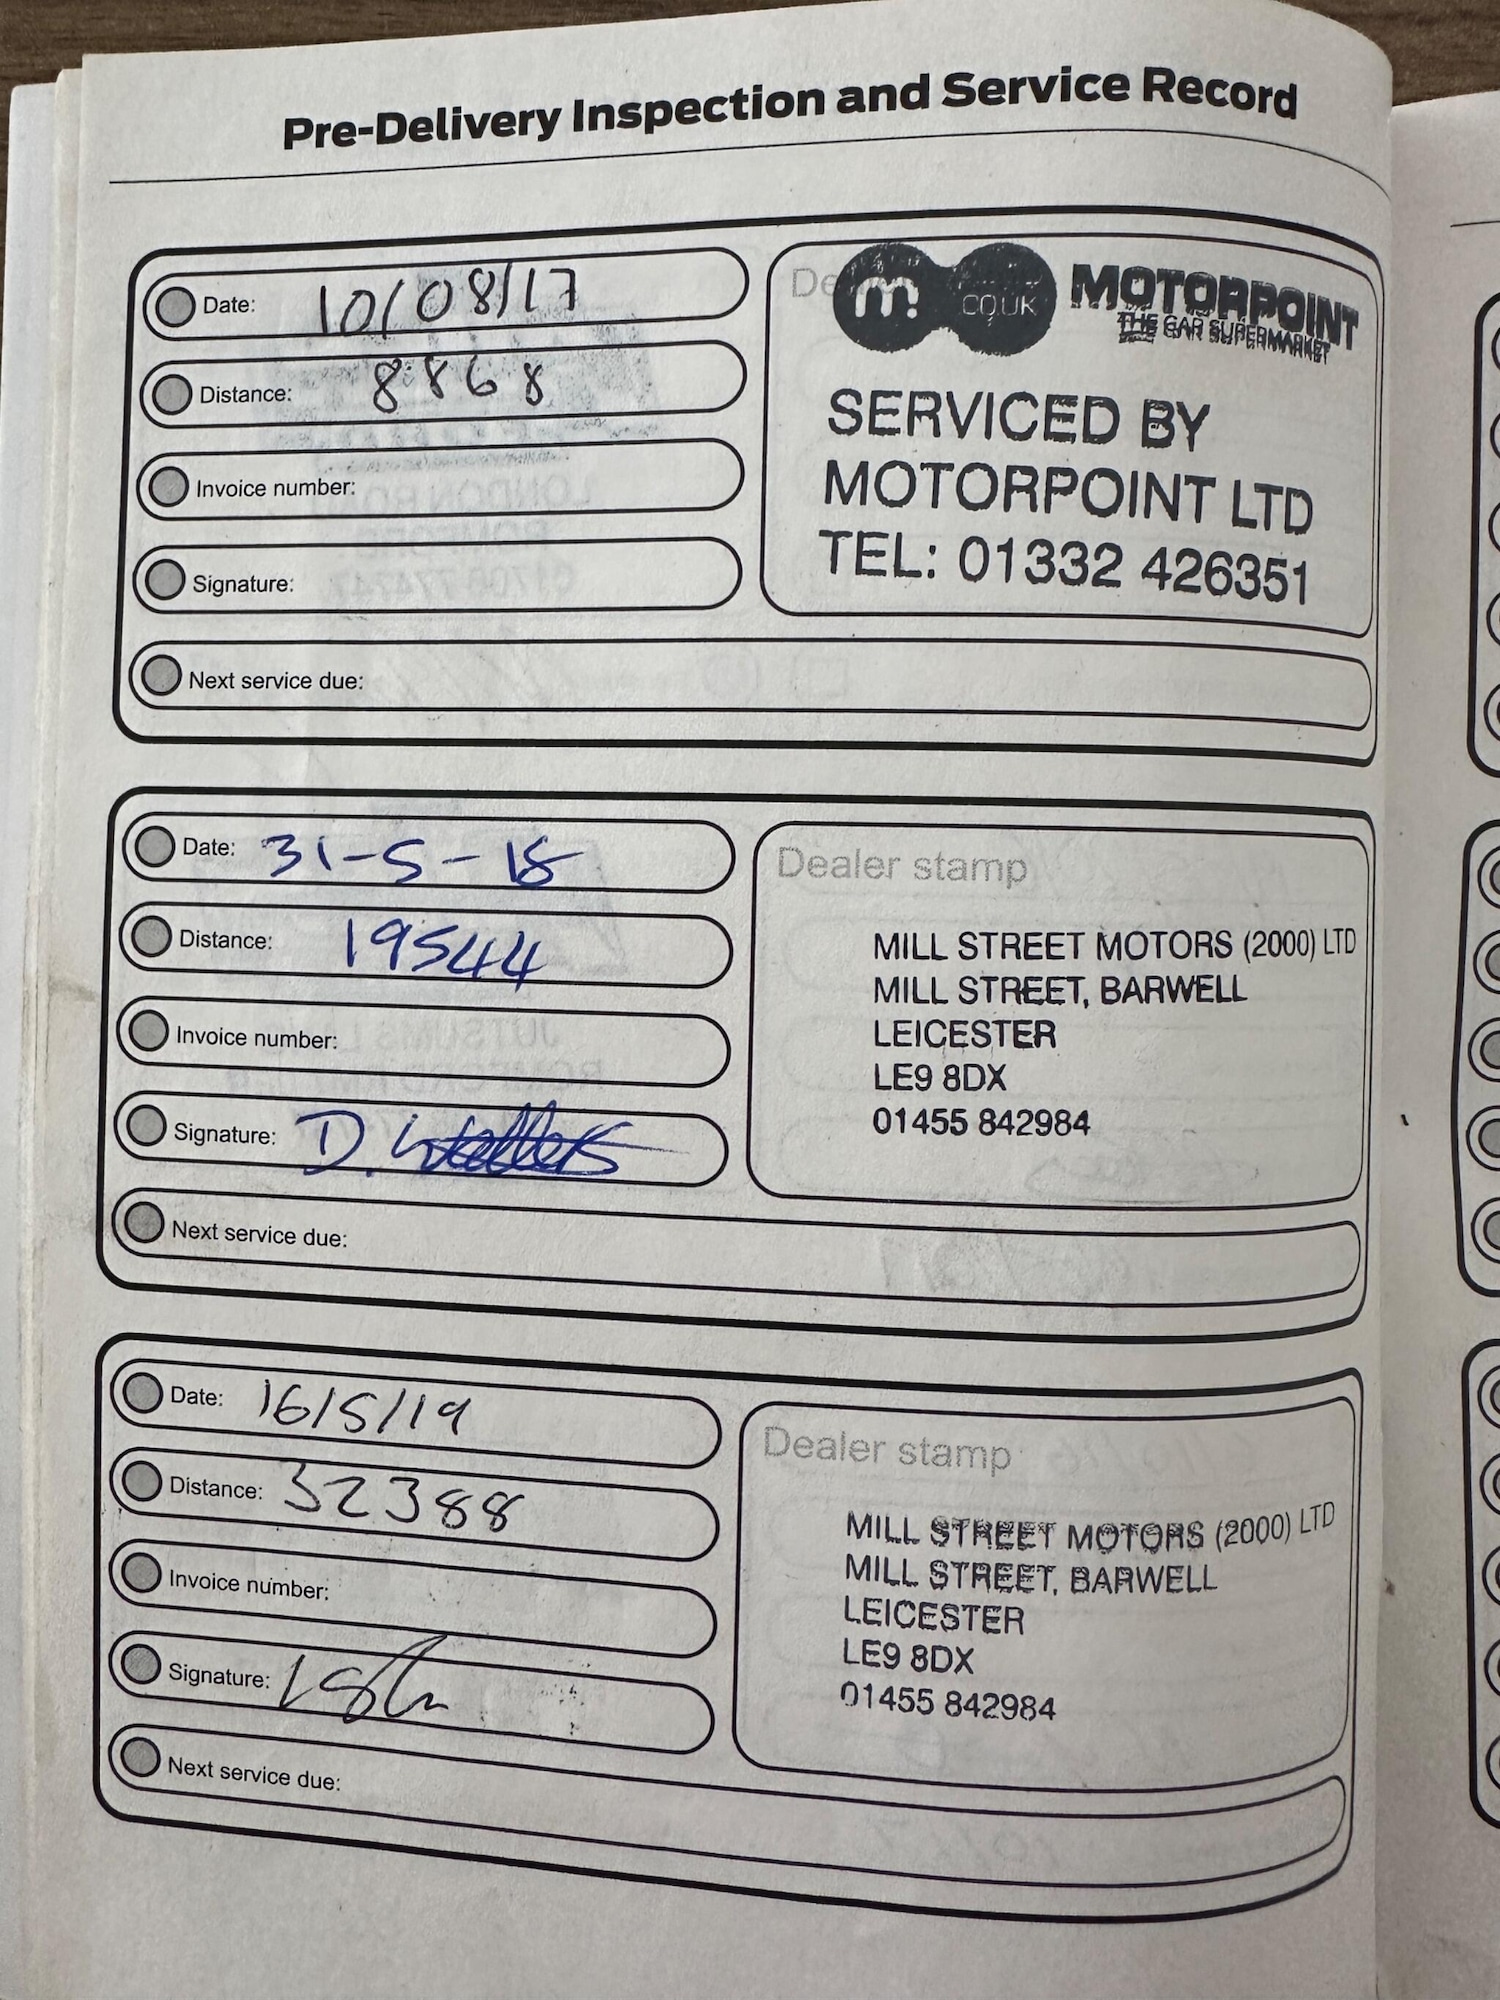 Pre-Delivery Inspection and Service Record
Date: 10/08/17
Distance: 8868
Invoice number:
Signature:
Next service due:
m! CO.UK MOTORPOINT
THE CAR SUPERMARKET
SERVICED BY
MOTORPOINT LTD
TEL: 01332 426351
Date: 31-5-18
Distance: 19544
Invoice number:
Signature: D.
Next service due:
Dealer stamp
MILL STREET MOTORS (2000) LTD
MILL STREET, BARWELL
LEICESTER
LE9 8DX
01455 842984
Date: 16/5/19
Distance: 32388
Invoice number:
Signature:
Next service due:
Dealer stamp
MILL STREET MOTORS (2000) LTD
MILL STREET, BARWELL
LEICESTER
LE9 8DX
01455 842984